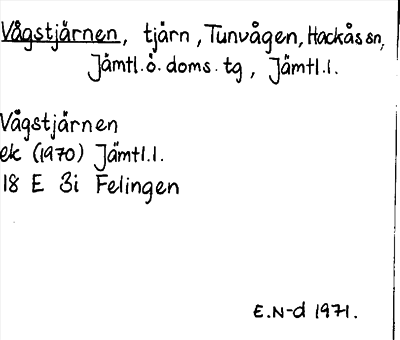 Vågstjärnen, tjärn, Tunvågen, Hackås sn,
Jämtl.ö.doms.tg, Jämtl.l.
Vågstjärnen
ek (1970) Jämtl.l.
18 E 3i Felingen
E.N-d 1971.